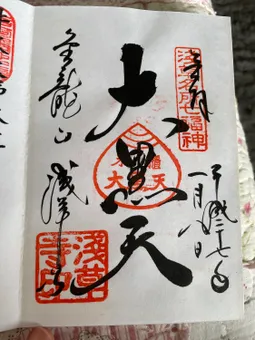 奉拝
浅草名所七福神
平成二十七年
一月八日
大黒天
金龍山
浅草寺
浅草寺印